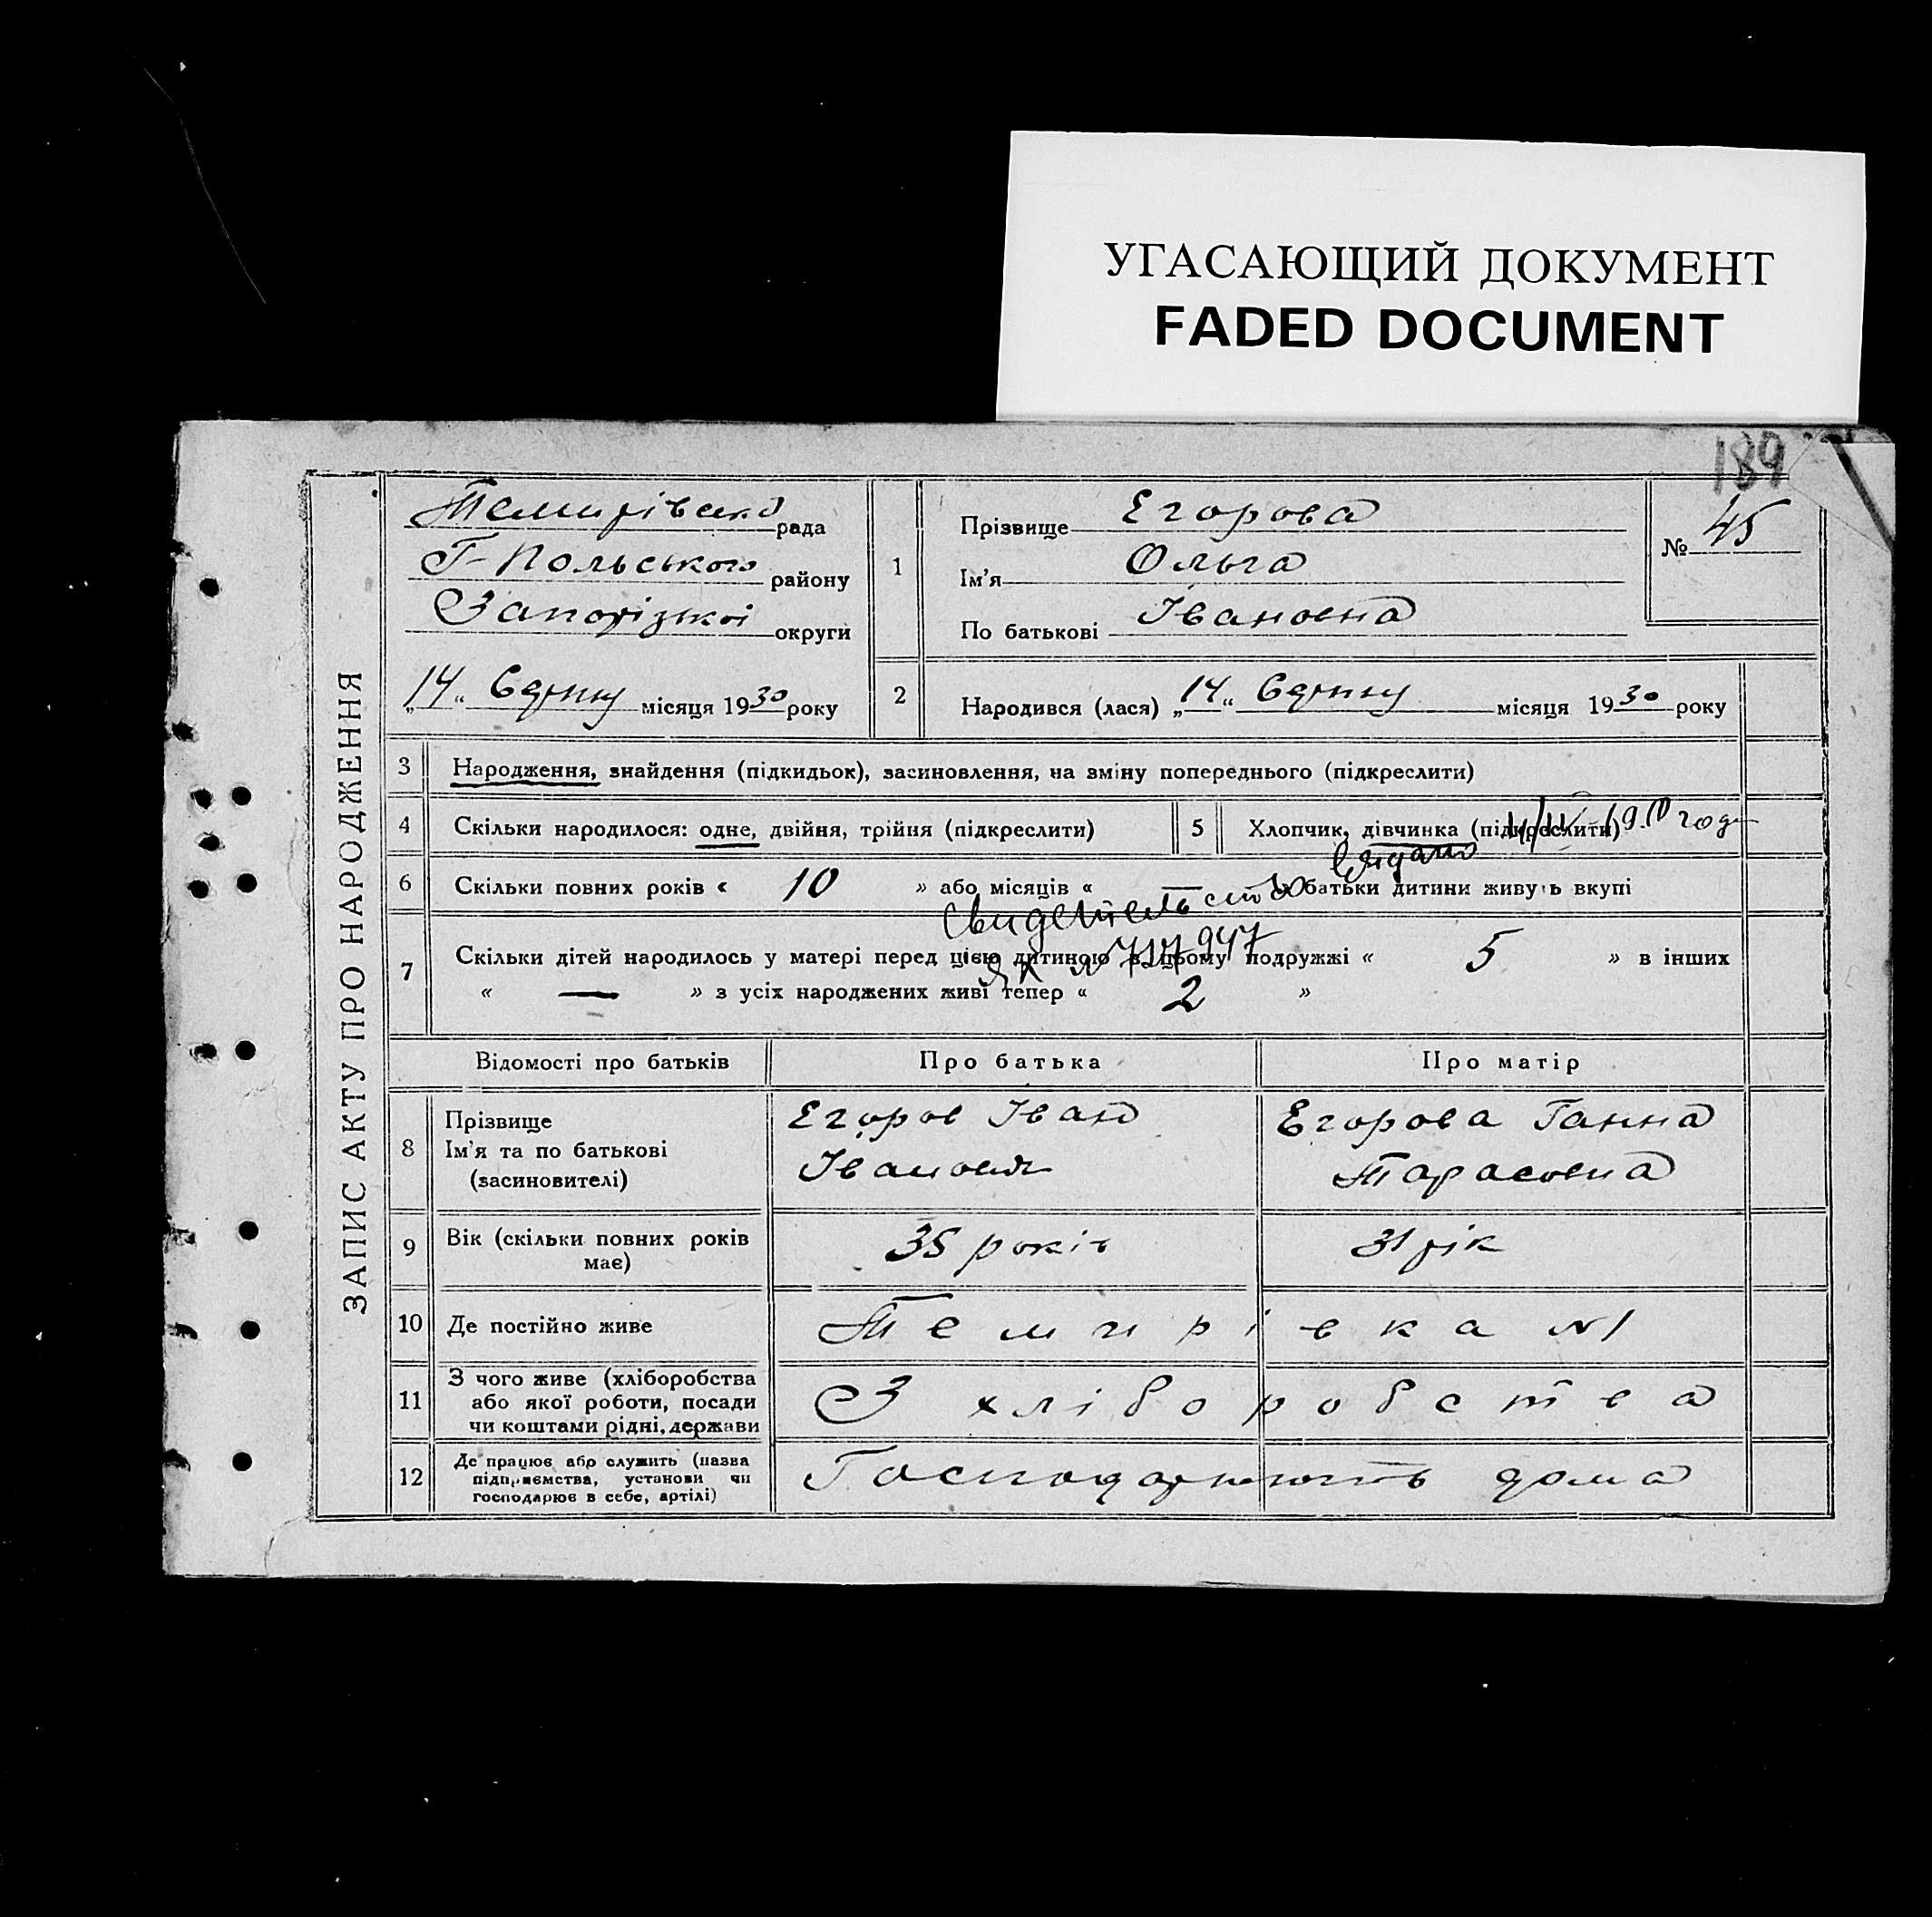 УГАСАЮЩИЙ ДОКУМЕНТ
FADED DOCUMENT
189
ЗАПИС АКТУ ПРО НАРОДЖЕННЯ
Темирівська рада
Г-Польського району
Запорізької округи
„14“ Серпня місяця 1930 року
1
Прізвище Егорова
Ім'я Ольга
По батькові Івановна
№ 45
2 Народився (лася) „14“ Серпня місяця 1930 року
3 Народження, знайдення (підкидьок), засиновлення, на зміну попереднього (підкреслити)
4 Скільки народилося: одне, двійня, трійня (підкреслити)
5 Хлопчик, дівчинка (підкреслити)
года
Видано
6 Скільки повних років « 10 » або місяців « — » батьки дитини живуть вкупі
Свидетельство
ЯК № 727947
7 Скільки дітей народилось у матері перед цією дитиною в цьому подружжі « 5 » в інших
« — » з усіх народжених живі тепер « 2 »
Відомості про батьків Про батька Про матір
8 Прізвище
Ім'я та по батькові
(засиновителі)
Егоров Іван
Іванович
Егорова Ганна
Тарасовна
9 Вік (скільки повних років
має)
35 років
31 рік
10 Де постійно живе Темирівка №1
11 З чого живе (хліборобства
або якої роботи, посади
чи коштами рідні, держави
З хліборобства
12 Де працює або служить (назва
підприємства, установи чи
господарює в себе, артілі)
Господарюють дома